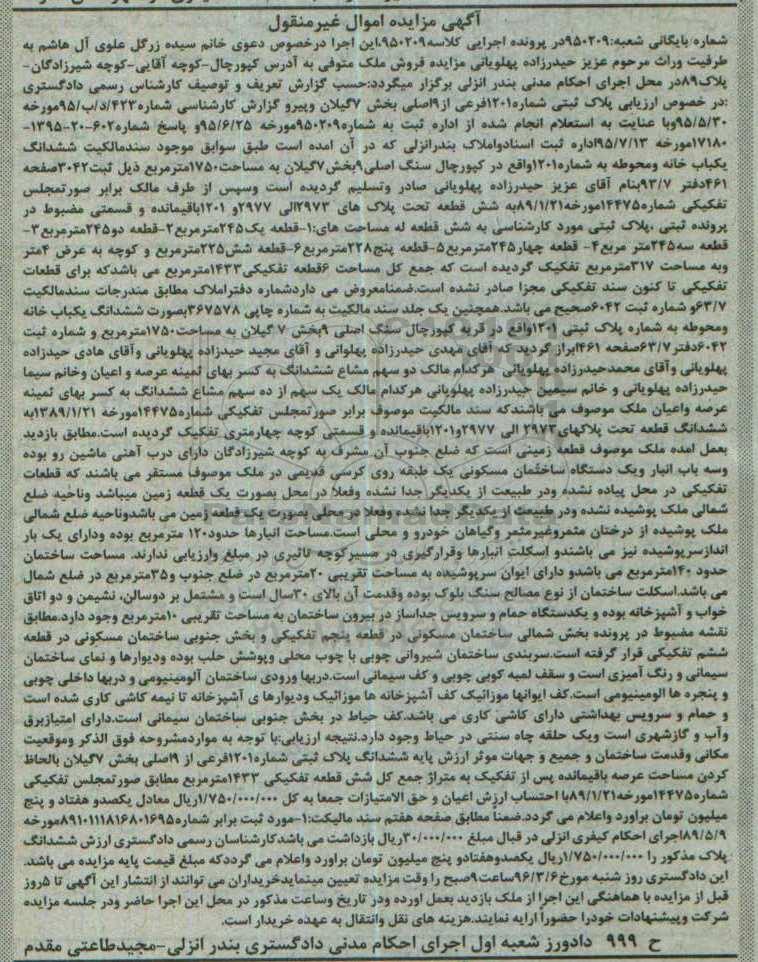 آگهی مزایده اموال غیرمنقول
شماره بایگانی شعبه:۹۵۰۲۰۹در پرونده اجرایی کلاسه۹۵۰۲۰۹،این اجرا درخصوص دعوی خانم سیده زرگل علوی آل هاشم به
طرفیت وراث مرحوم عزیز حیدرزاده پهلویانی مزایده فروش ملک متوفی به آدرس کپورچال-کوچه آقایی-کوچه شیرزادگان-
پلاک۸۹در محل اجرای احکام مدنی بندر انزلی برگزار میگردد:حسب گزارش تعریف و توصیف کارشناس رسمی دادگستری
:در خصوص ارزیابی پلاک ثبتی شماره۱۲۰۱فرعی از۹اصلی بخش ۷گیلان وپیرو گزارش کارشناسی شماره۴۲۳/د/ب/۹۵مورخه
۹۵/۵/۳۰وبا عنایت به استعلام انجام شده از اداره ثبت به شماره۹۵۰۲۰۹مورخه ۹۵/۶/۲۵و پاسخ شماره۶۰۲-۲۰-۱۳۹۵-
۱۷۱۸۰مورخه ۹۵/۷/۱۳اداره ثبت اسنادواملاک بندرانزلی که در آن آمده است طبق سوابق موجود سندمالکیت ششدانگ
یکباب خانه ومحوطه به شماره۱۲۰۱واقع در کپورچال سنگ اصلی۹بخش۷گیلان به مساحت۱۷۵۰مترمربع ذیل ثبت۳۰۴۲صفحه
۴۶۱دفتر ۹۳/۷بنام آقای عزیز حیدرزاده پهلویانی صادر وتسلیم گردیده است وسپس از طرف مالک برابر صورتمجلس
تفکیکی شماره۱۴۴۷۵مورخه۸۹/۱/۲۱به شش قطعه تحت پلاک های ۲۹۷۳الی ۲۹۷۷و ۱۲۰۱باقیمانده و قسمتی مضبوط در
پرونده ثبتی ،پلاک ثبتی مورد کارشناسی به شش قطعه له مساحت های:۱-قطعه یک۲۴۵مترمربع۲-قطعه دو۲۴۵مترمربع۳-
قطعه سه۲۴۵متر مربع۴- قطعه چهار۲۴۵مترمربع۵-قطعه پنج۲۲۸مترمربع۶-قطعه شش۲۲۵مترمربع و کوچه به عرض ۴متر
وبه مساحت ۳۱۷مترمربع تفکیک گردیده است که جمع کل مساحت ۶قطعه تفکیکی۱۴۳۳مترمربع می باشدکه برای قطعات
تفکیکی تا کنون سند تفکیکی مجزا صادر نشده است.ضمنامعروض می داردشماره دفتراملاک مطابق مندرجات سندمالکیت
۶۳/۷و شماره ثبت ۶۰۴۲صحیح می باشد.همچنین یک جلد سند مالکیت به شماره چاپی ۳۶۷۵۷۸بصورت ششدانگ یکباب خانه
ومحوطه به شماره پلاک ثبتی ۱۲۰۱واقع در قریه کپورچال سنگ اصلی ۹بخش ۷ گیلان به مساحت۱۷۵۰مترمربع و شماره ثبت
۶۰۴۲دفتر۶۳/۷صفحه ۴۶۱ابراز گردید که آقای مهدی حیدرزاده پهلوانی و آقای مجید حیدرزاده پهلویانی وآقای هادی حیدزاده
پهلویانی وآقای محمدحیدرزاده پهلویانی هرکدام مالک دو سهم مشاع ششدانگ به کسر بهای ثمینه عرصه و اعیان وخانم سیما
حیدرزاده پهلویانی و خانم سیمین حیدرزاده پهلویانی هرکدام مالک یک سهم از ده سهم مشاع ششدانگ به کسر بهای ثمینه
عرصه واعیان ملک موصوف می باشندکه سند مالکیت موصوف برابر صورتمجلس تفکیکی شماره۱۴۴۷۵مورخه ۱۳۸۹/۱/۲۱به
ششدانگ قطعه تحت پلاکهای۲۹۷۳ الی ۲۹۷۷و۱۲۰۱باقیمانده و قسمتی کوچه چهارمتری تفکیک گردیده است.مطابق بازدید
بعمل امده ملک موصوف قطعه زمینی است که ضلع جنوب آن مشرف به کوچه شیرزادگان دارای درب آهنی ماشین رو بوده
وسه باب انبار ویک دستگاه ساختمان مسکونی یک طبقه روی کرسی قدیمی در ملک موصوف مستقر می باشند که قطعات
تفکیکی در محل پیاده نشده ودر طبیعت از یکدیگر جدا نشده وفعلا در محل بصورت یک قطعه زمین میباشد وناحیه ضلع
شمالی ملک پوشیده نشده ودر طبیعت از یکدیگر جدا نشده وفعلا در محلی بصورت یک قطعه زمین می باشدوناحیه ضلع شمالی
ملک پوشیده از درختان مثمروغیرمثمر وگیاهان خودرو و محلی است.مساحت انبارها حدود۱۲۰ مترمربع بوده ودارای یک بار
اندازسرپوشیده نیز می باشندو اسکلت انبارها وقرارگیری در مسیرکوچه تاثیری در مبلغ وارزیابی ندارند. مساحت ساختمان
حدود ۱۴۰مترمربع می باشدو دارای ایوان سرپوشیده به مساحت تقریبی ۲۰مترمربع در ضلع جنوب و۳۵مترمربع در ضلع شمال
می باشد.اسکلت ساختمان از نوع مصالح سنگ بلوک بوده وقدمت آن بالای ۳۰سال است و مشتمل بر دوسالن، نشیمن و دو اتاق
خواب و آشپزخانه بوده و یکدستگاه حمام و سرویس جداساز در بیرون ساختمان به مساحت تقریبی ۱۰مترمربع وجود دارد.مطابق
نقشه مضبوط در پرونده بخش شمالی ساختمان مسکونی در قطعه پنجم تفکیکی و بخش جنوبی ساختمان مسکونی در قطعه
ششم تفکیکی قرار گرفته است.سربندی ساختمان شیروانی چوبی با چوب محلی وپوشش حلب بوده ودیوارها و نمای ساختمان
سیمانی و رنگ آمیزی است و سقف لمبه کوبی چوبی و کف سیمانی است.دربها ورودی ساختمان آلومینیومی و دربها داخلی چوبی
و پنجره ها الومینیومی است.کف ایوانها موزائیک کف آشپزخانه ها موزائیک ودیوارها ی آشپزخانه تا نیمه کاشی کاری شده است
و حمام و سرویس بهداشتی دارای کاشی کاری می باشد.کف حیاط در بخش جنوبی ساختمان سیمانی است.دارای امتیازبرق
وآب و گازشهری است ویک حلقه چاه سنتی در حیاط وجود دارد.نتیجه ارزیابی:با توجه به مواردمشروحه فوق الذکر وموقعیت
مکانی وقدمت ساختمان و جمیع و جهات موثر ارزش پایه ششدانگ پلاک ثبتی شماره۱۲۰۱فرعی از ۹اصلی بخش ۷گیلان بالحاظ
کردن مساحت عرصه باقیمانده پس از تفکیک به متراژ جمع کل شش قطعه تفکیکی ۱۴۳۳مترمربع مطابق صورتمجلس تفکیکی
شماره۱۴۴۷۵مورخه۸۹/۱/۲۱با احتساب ارزش اعیان و حق الامتیازات جمعا به کل ۱/۷۵۰/۰۰۰/۰۰۰ریال معادل یکصدو هفتاد و پنج
میلیون تومان براورد واعلام می گردد.ضمناً مطابق صفحه هفتم سند مالیکت:۱-مورد ثبت برابر شماره۸۹۱۰۱۱۱۸۱۶۸۰۱۶۹۵مورخه
۸۹/۵/۹اجرای احکام کیفری انزلی در قبال مبلغ ۳۰/۰۰۰/۰۰۰ریال بازداشت می باشدکارشناسان رسمی دادگستری ارزش ششدانگ
پلاک مذکور را ۱/۷۵۰/۰۰۰/۰۰۰ریال یکصدوهفتادو پنج میلیون تومان براورد واعلام می گرددکه مبلغ قیمت پایه مزایده می باشد.
این دادگستری روز شنبه مورخ۹۶/۳/۶ساعت۹صبح را وقت مزایده تعیین مینمایدخریداران می توانند از انتشار این آگهی تا ۵روز
قبل از مزایده با هماهنگی این اجرا از ملک بازدید بعمل اورده ودر تاریخ وساعت مذکور در محل این اجرا حاضر ودر جلسه مزایده
شرکت وپیشنهادات خودرا حضوراً ارایه نمایند.هزینه های نقل وانتقال به عهده خریدار است.
ح ۹۹۹ دادورز شعبه اول اجرای احکام مدنی دادگستری بندر انزلی-مجیدطاعتی مقدم